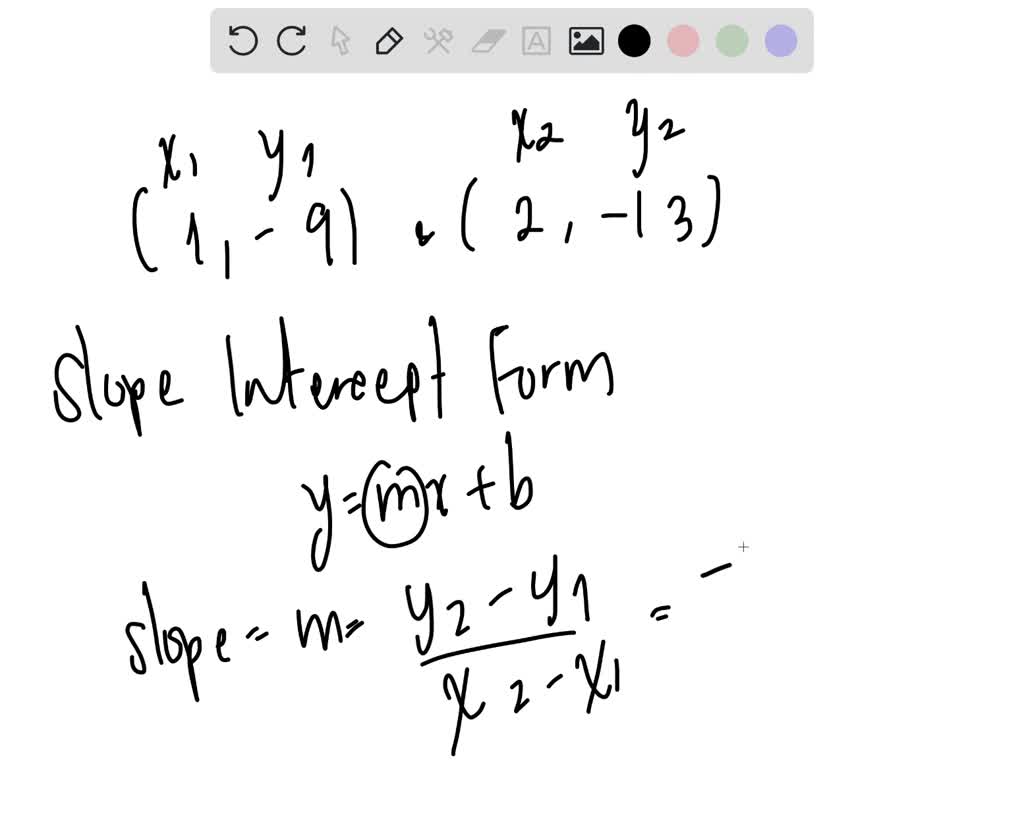 x1 y1 x2 y2
(1, -9) & (2, -13)
Slope Intercept Form
y = mx + b
slope = m = y2 - y1 / x2 - x1 = -